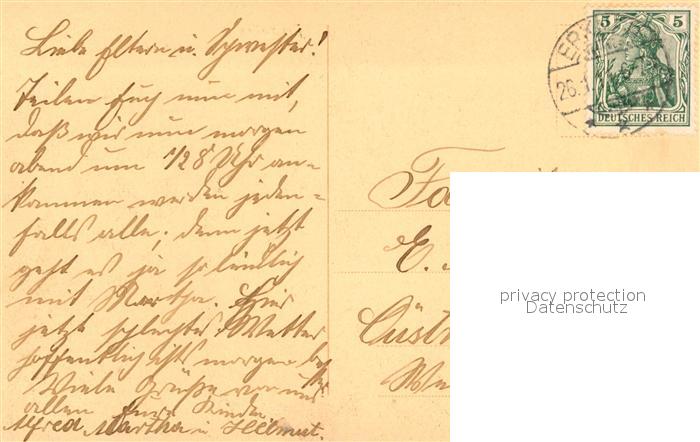 Liebe Eltern u. Schwester!
Teilen Euch nun mit,
daß wir nun morgen
abend um 1/28 Uhr an=
kommen werden jeden=
falls alle, denn jetzt
geht es ja so leidlich
mit Martha. Hier
jetzt schlechtes Wetter
hoffentlich ists morgen
Viele Grüße von uns
allen Eure Kinder
Alfred Martha u Helmut.
5 5
DEUTSCHES REICH
26.1
E.
privacy protection
Datenschutz